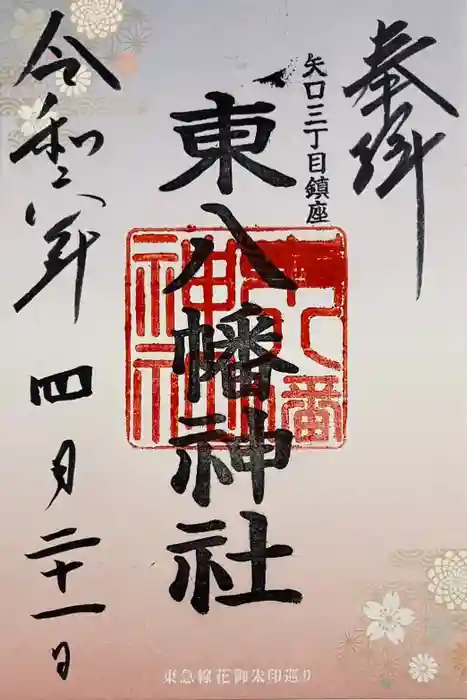 奉拝
矢口三丁目鎮座
東八幡神社
令和六年 四月二十一日
東急線花御朱印巡り